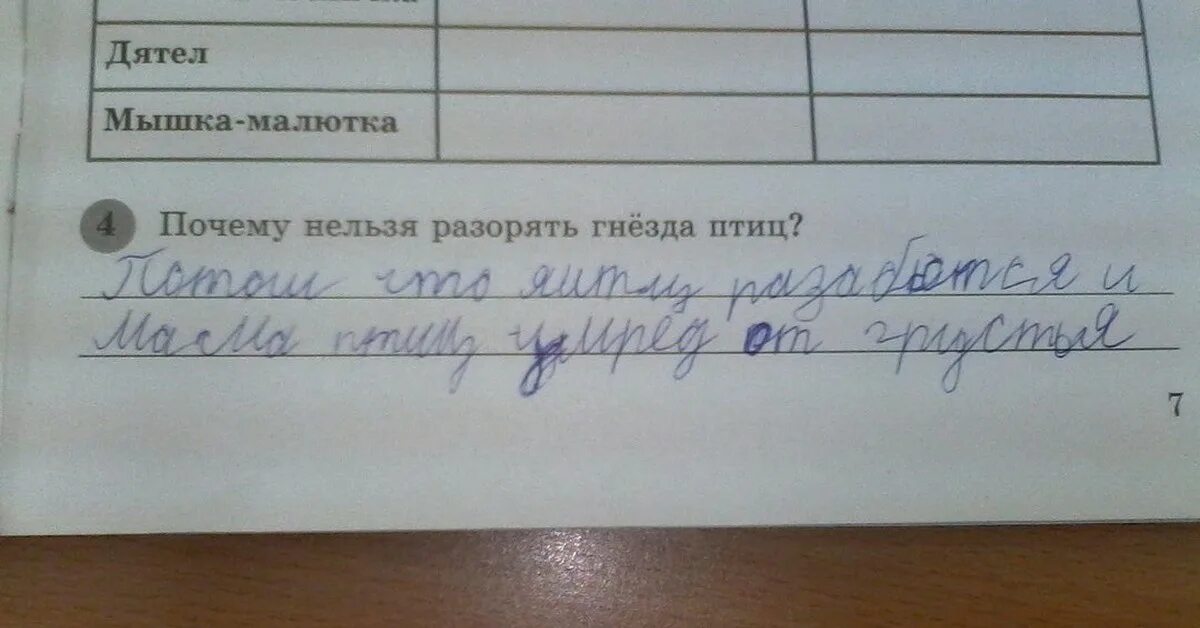 Дятел
Мышка-малютка
4 Почему нельзя разорять гнёзда птиц?
Потош что яитцы разабются и
мама птиц умрёд от грустья
7